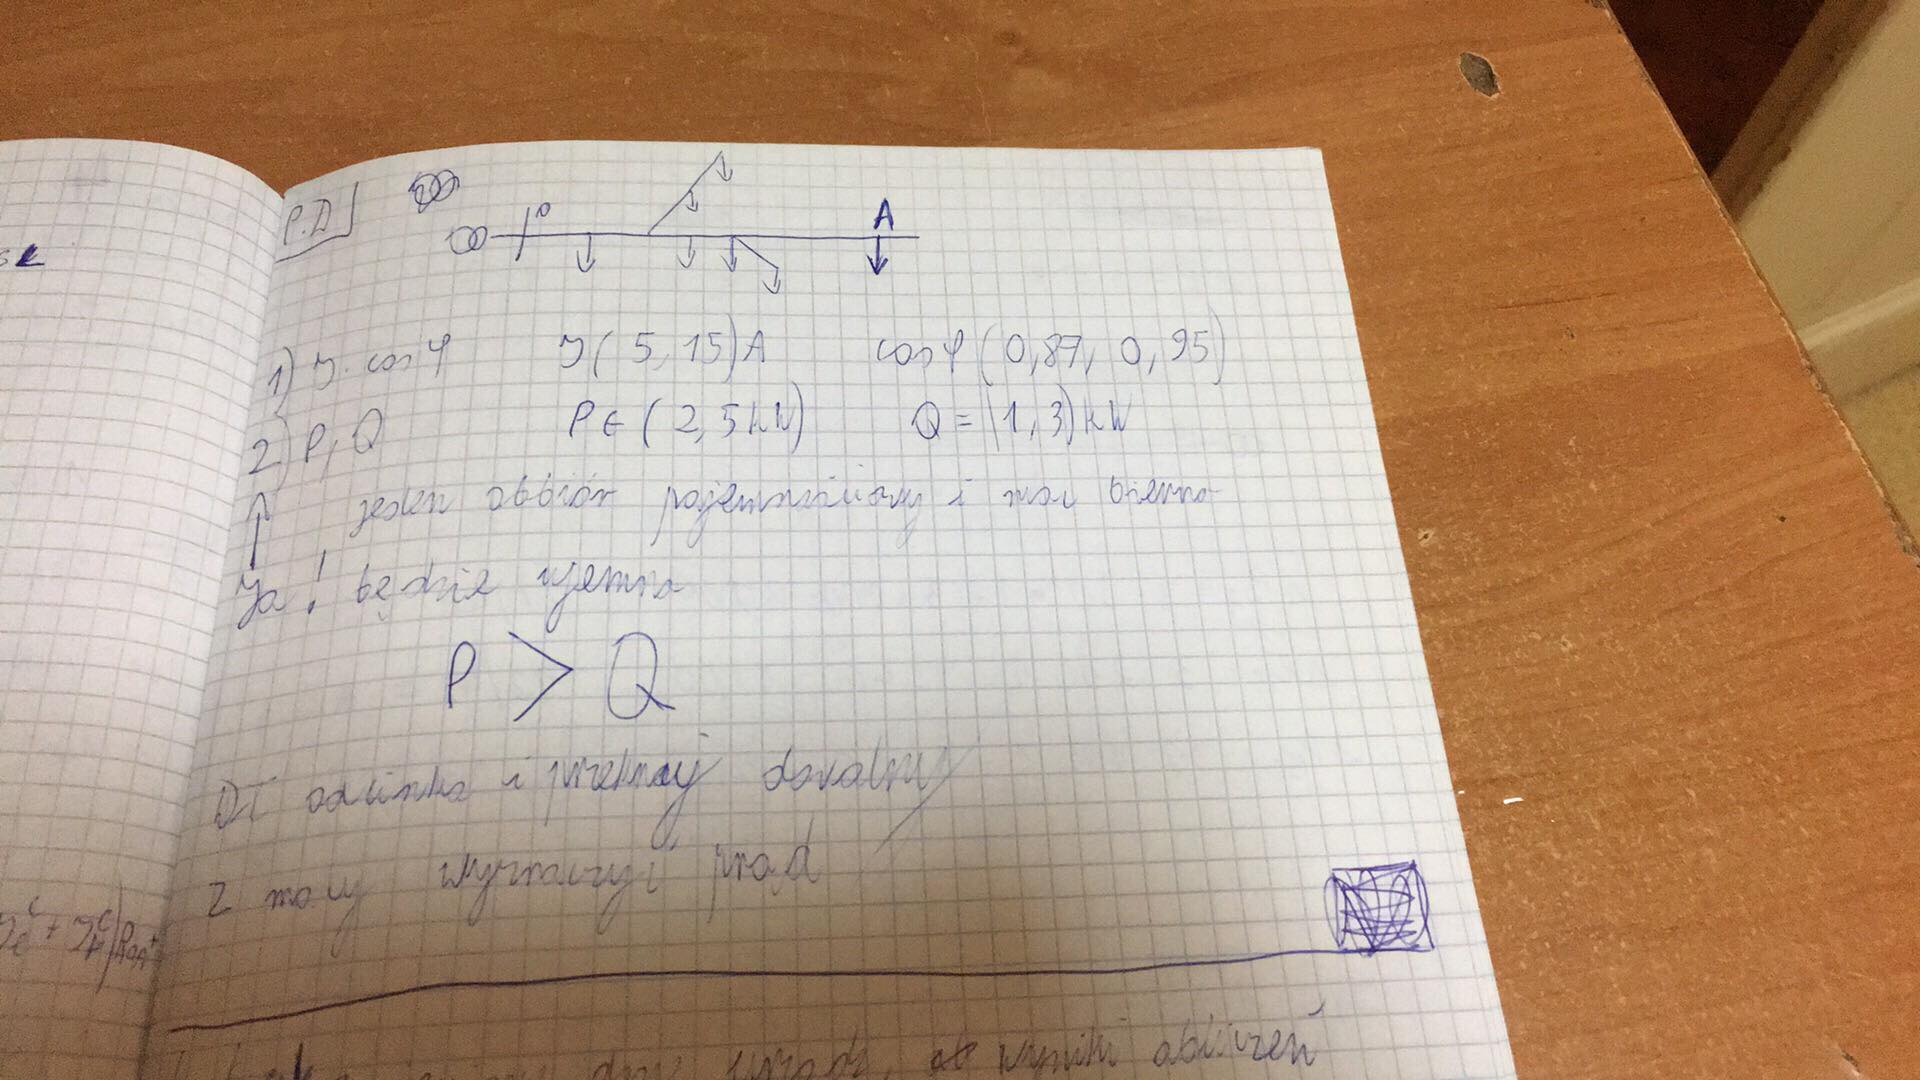 P.D
0
A
1) J. cosφ J(5,15)A cosφ(0,87, 0,95)
2) P, Q P∈(2,5kW) Q=(1,3)kW
jeden odbiór pojemnościowy i moc bierna
Ja! będzie ujemna
P > Q
Dł odcinka i przekrój dowolny
Z mocy wyznaczyć prąd
wyniki obliczeń